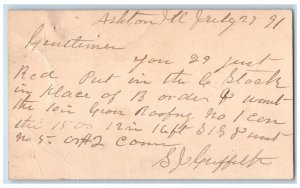 Ashton Ill July 29 91
Gentlemen
You 29 just
Red Put in the C. Stock
in place of B order I want
the 10in Grou Roofing No 1 can
the 1500 12in 16ft S1S I want
No 5 or #2 Com
S J Griffith